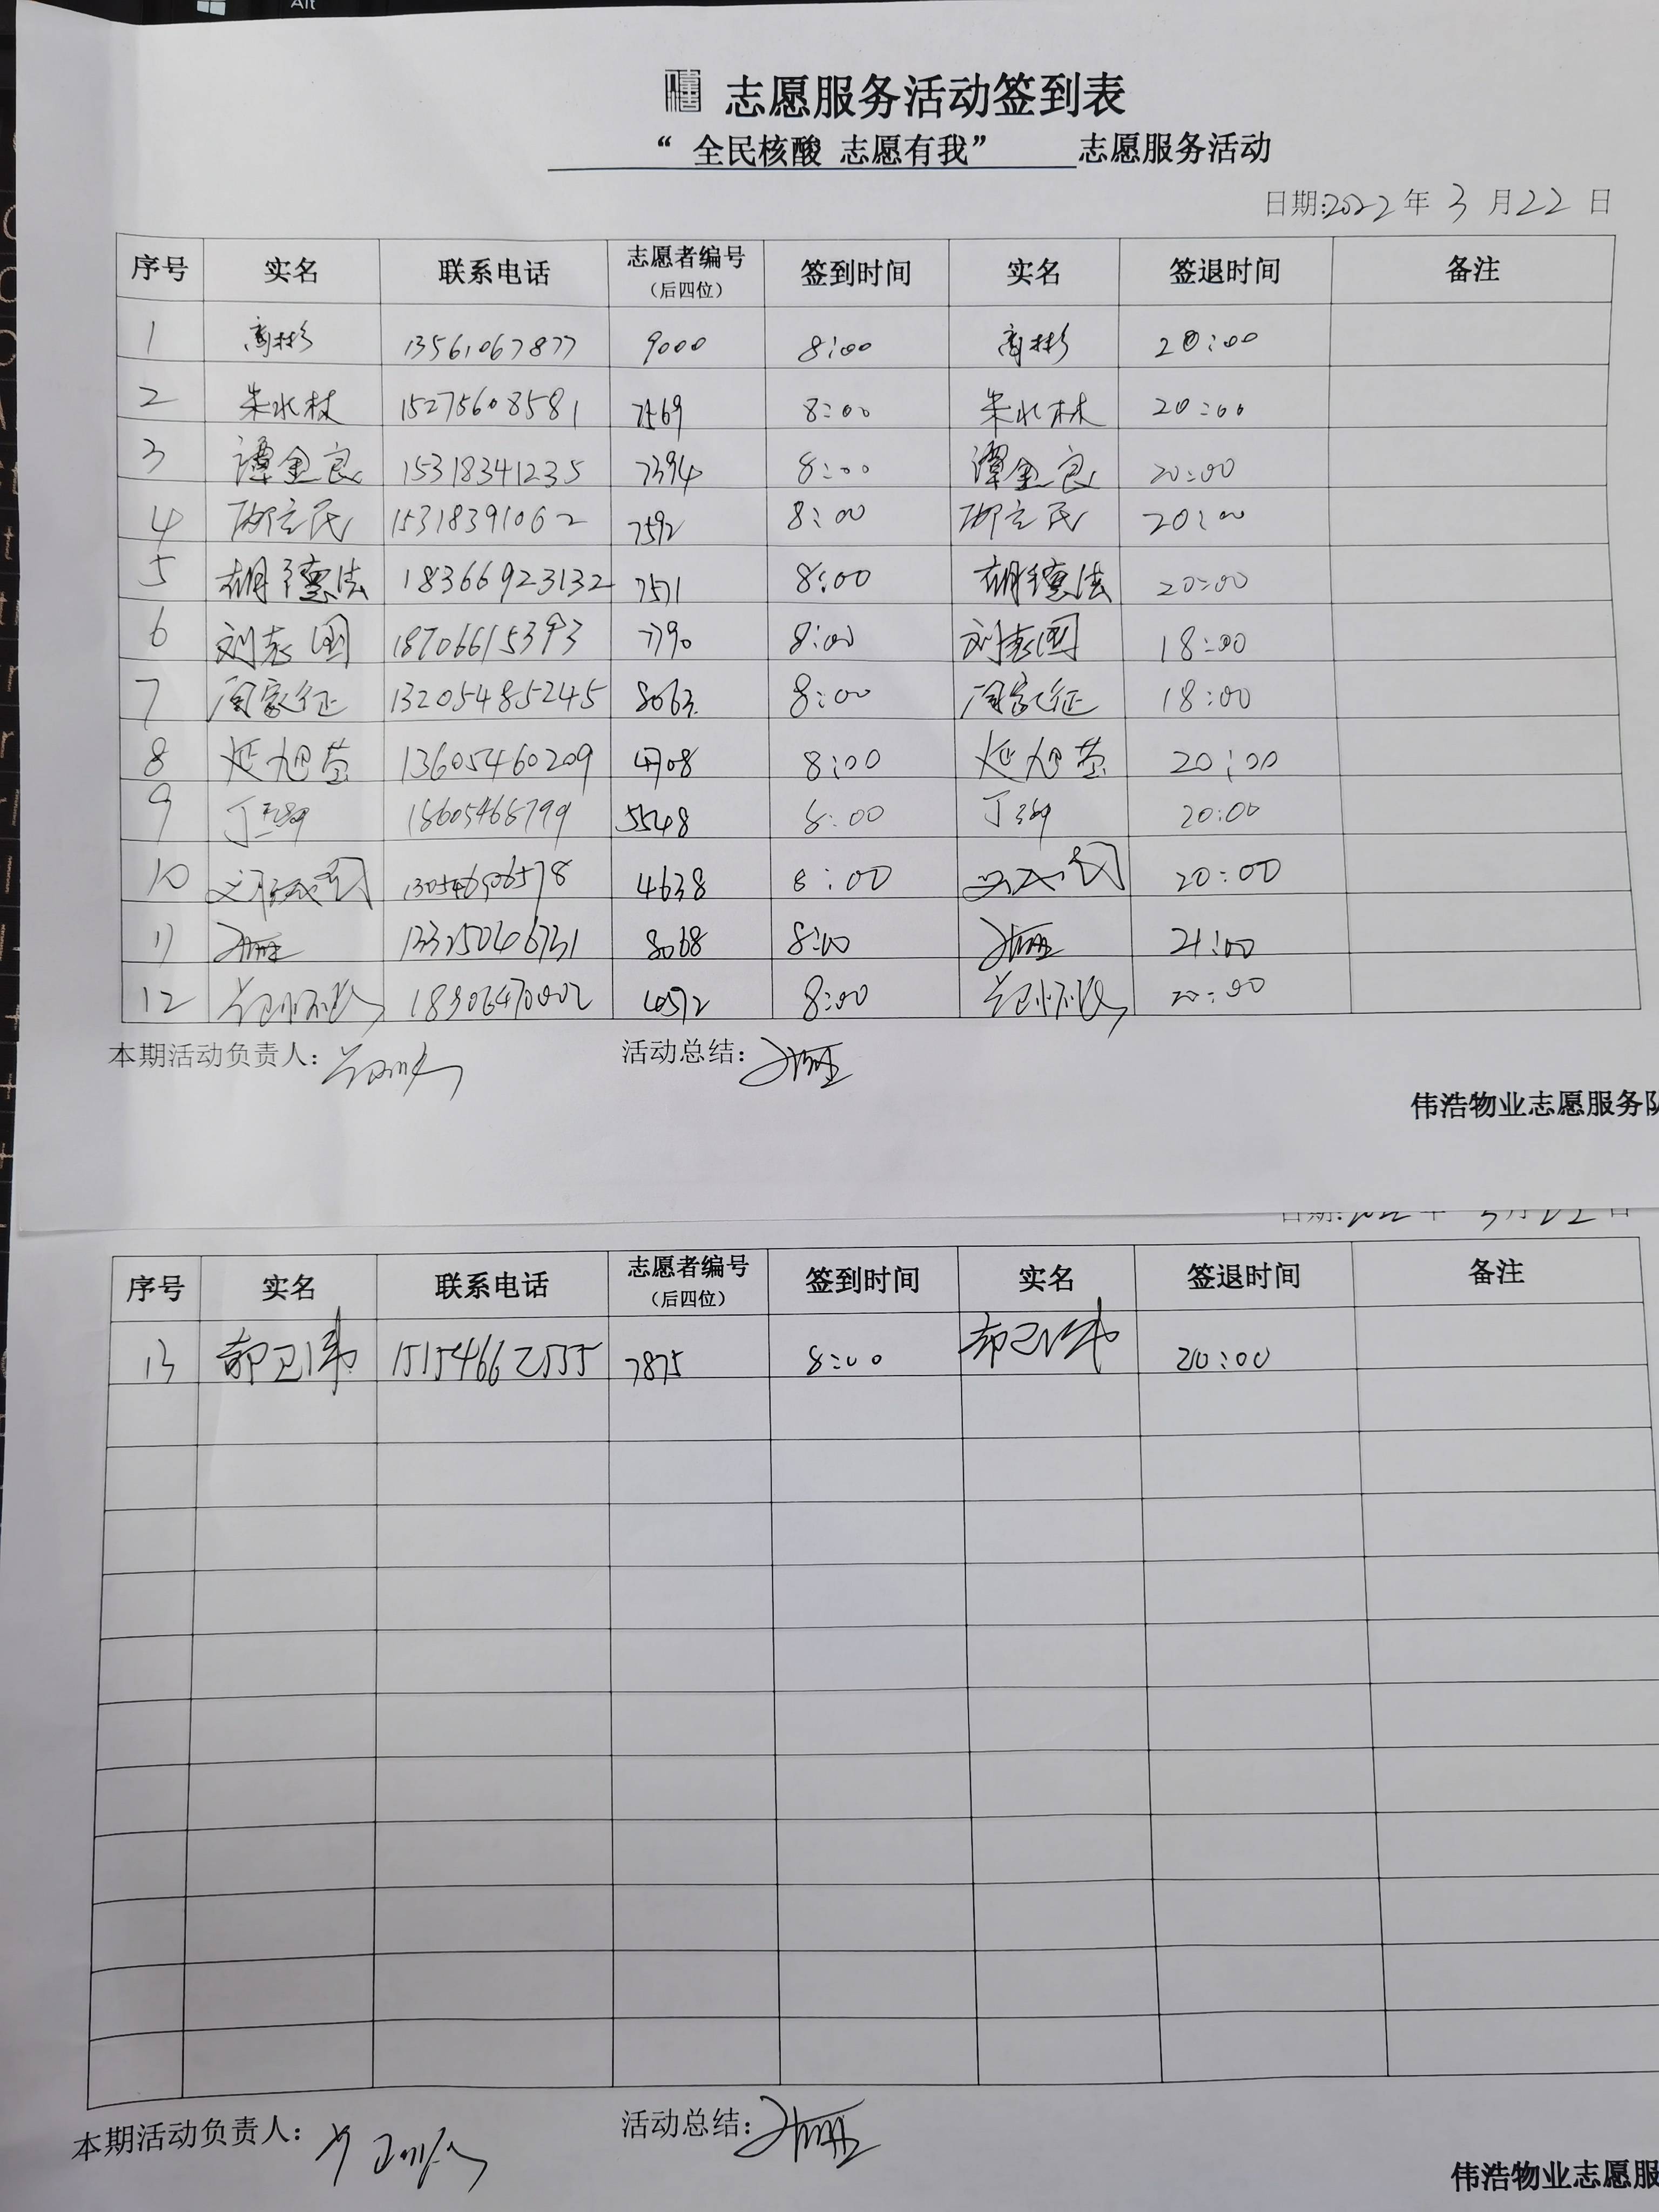 Alt
志愿服务活动签到表
“ 全民核酸 志愿有我” 志愿服务活动
日期:2022年 3 月 22 日
序号 实名 联系电话 志愿者编号（后四位） 签到时间 实名 签退时间 备注
1 高彬 13561067877 9000 8:00 高彬 20:00
2 朱水林 15275608581 7569 8:00 朱水林 20:00
3 谭金良 15318341235 7394 8:00 谭金良 20:00
4 邴立民 15318391062 7592 8:00 邴立民 20:00
5 胡德法 18366923132 7571 8:00 胡德法 20:00
6 刘志国 18706615393 7790 8:00 刘志国 18:00
7 周家征 13205485245 8063 8:00 周家征 18:00
8 延旭莹 13605460209 4708 8:00 延旭莹 20:00
9 丁 5548 8:00 丁 20:00
10 4638 8:00 20:00
11 8068 8:00 21:00
12 8:00 20:00
本期活动负责人： 活动总结：
伟浩物业志愿服务队
日期:2022年 3月22日
序号 实名 联系电话 志愿者编号（后四位） 签到时间 实名 签退时间 备注
13 郝卫伟 15154662555 7875 8:00 郝卫伟 20:00
本期活动负责人： 活动总结：
伟浩物业志愿服